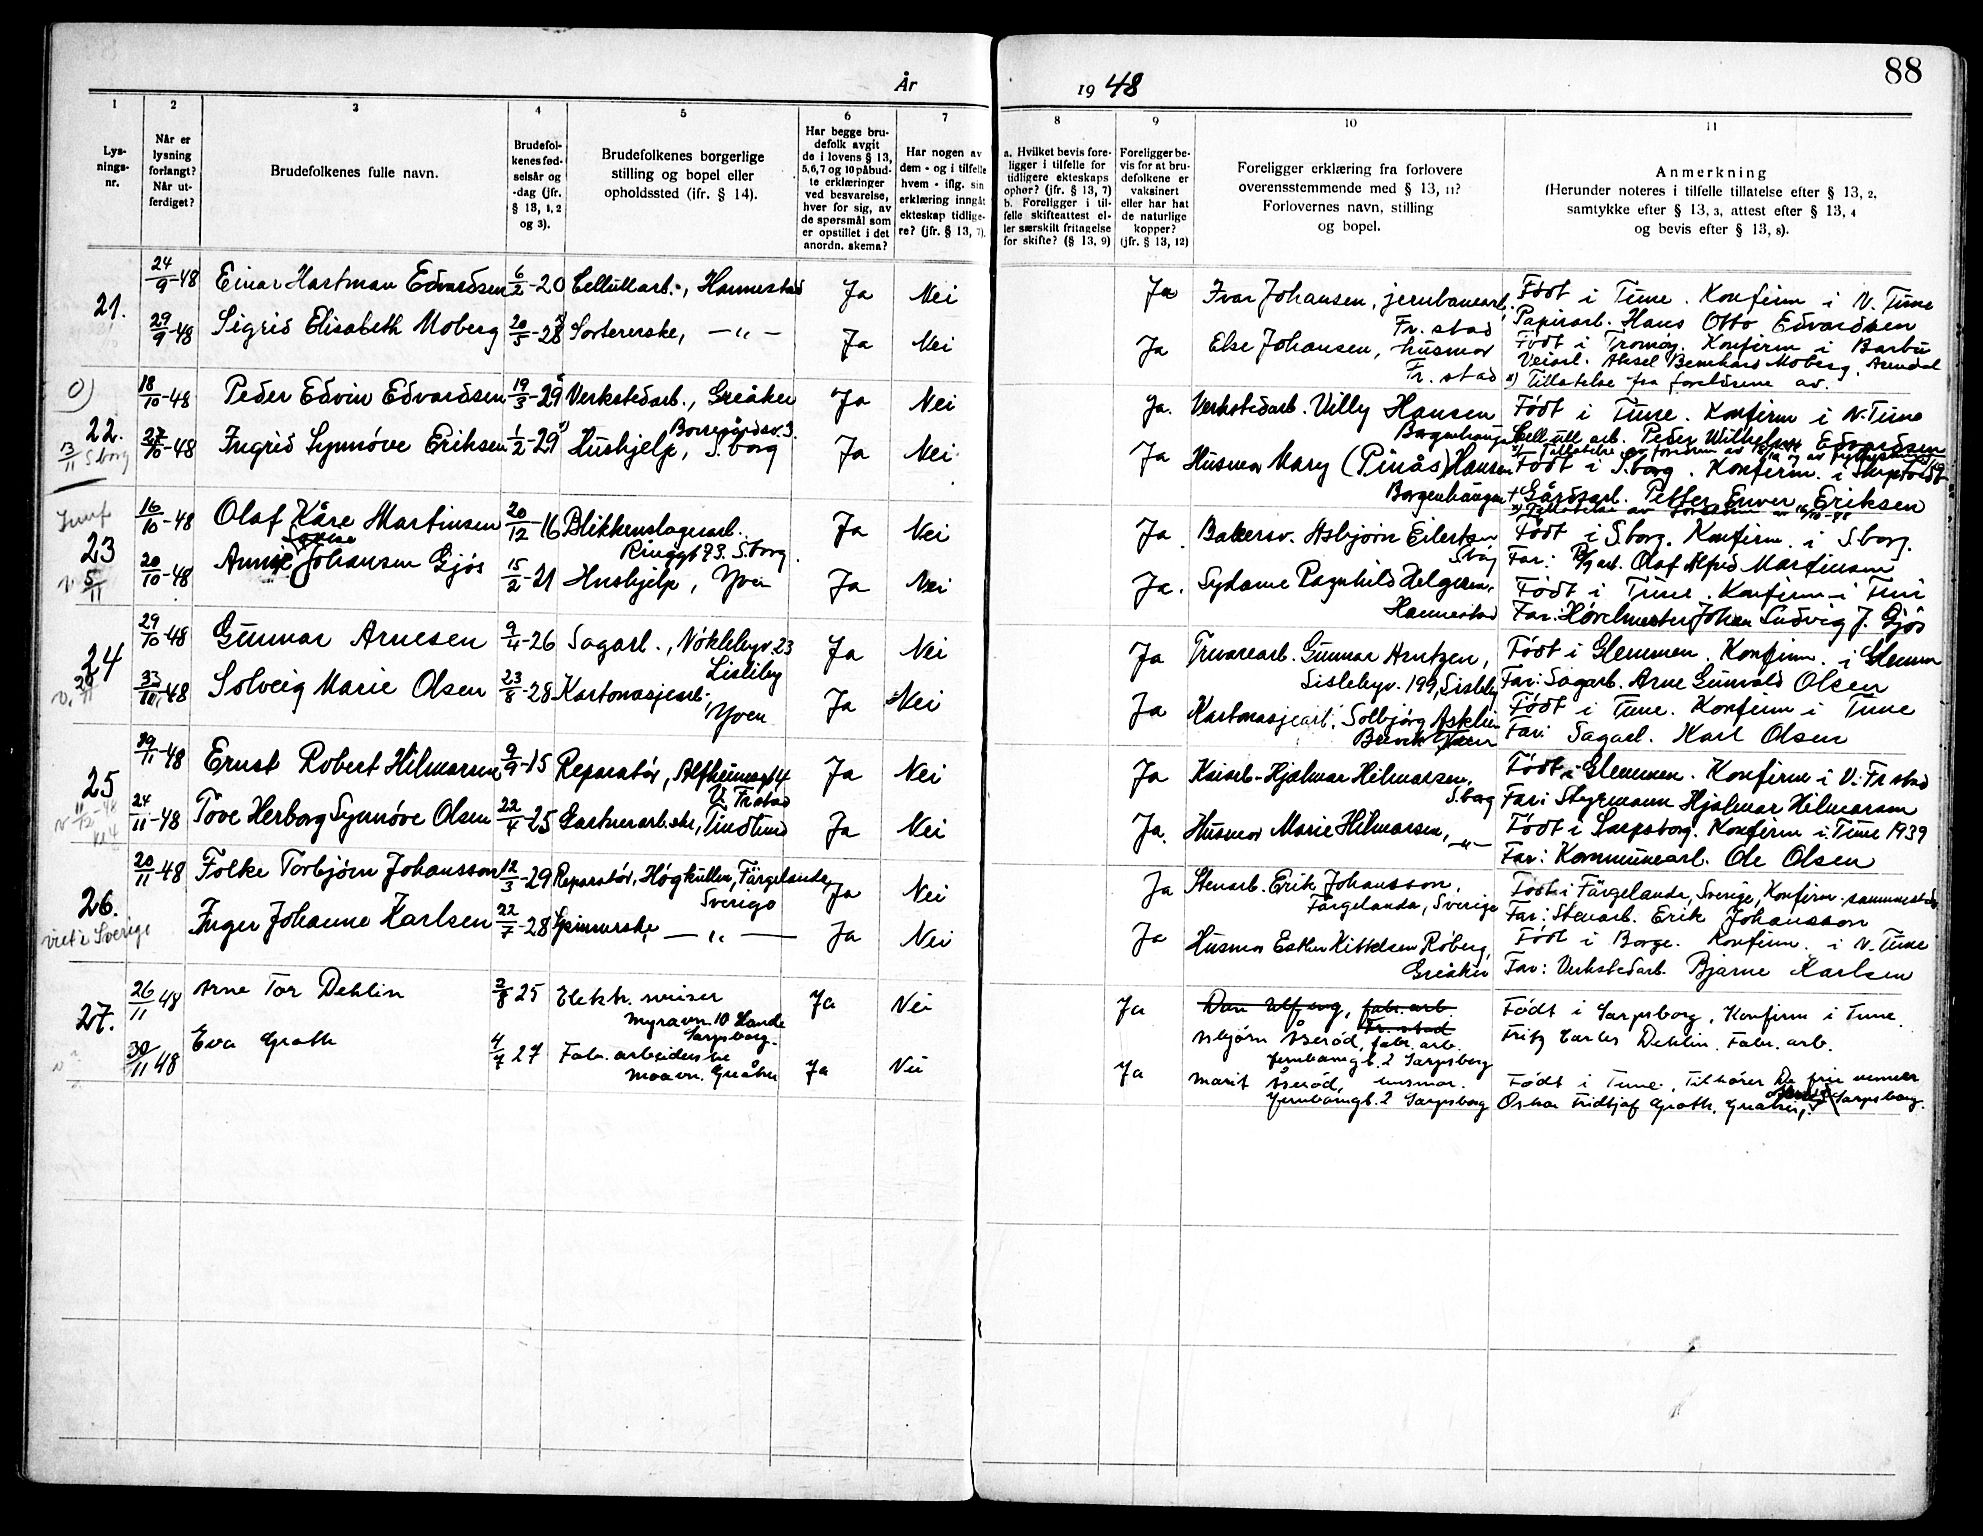 88
År 1948
1
2
3
4
5
6
7
8
9
10
11
Lys-
nings-
nr.
Når er
lysning
forlangt?
Når ut-
ferdiget?
Brudefolkenes fulle navn.
Brudefol-
kenes fød-
selsår og
-dag (jfr.
§ 13, 1, 2
og 3).
Brudefolkenes borgerlige
stilling og bopel eller
opholdssted (ifr. § 14).
Har begge bru-
defolk avgit
de i lovens § 13,
5,6,7 og 10 påbud-
te erklæringer
ved besvarelse,
hver for sig, av
de spørsmål som
er opstillet i det
anordn. skema?
Har nogen av
dem - og i tilfelle
hvem - iflg. sin
erklæring inngåt
ekteskap tidlige-
re? (jfr. § 13, 7).
a. Hvilket bevis fore-
ligger i tilfelle for
tidligere ekteskaps
ophør? (jfr. § 13, 7)
b. Foreligger i til-
felle skifteattest el-
ler særskilt fritagelse
for skifte? (§ 13, 9)
Foreligger be-
vis for at bru-
defolkene er
vaksinert
eller har hat
de naturlige
kopper?
(jfr. § 13, 12)
Foreligger erklæring fra forlovere
overensstemmende med § 13, 11?
Forlovernes navn, stilling
og bopel.
Anmerkning
(Herunder noteres i tilfelle tillatelse efter § 13, 2,
samtykke efter § 13, 3, attest efter § 13, 4
og bevis efter § 13, 8).
21.
24/9-48 Einar Hartman Edvardsen 6/2-20 Cellullarb., Hannestad Ja Nei Ja Ivar Johansen, jernbanearb.
Fr. stad
Født i Tune. Konfirm i N. Tune
Papirarb. Hans Otto Edvardsen
29/9-48 Sigrid Elisabeth Moberg 20/5-28 Sortererske, —„— Ja Nei Ja Else Johansen, husmor
Fr. stad
Født i Tromøy. Konfirm i Barbu
Veiarb. Aksel Bernhard Moberg, Arendal
Tillatelse fra foreldrene av.
0)
22.
13/11 S.borg
18/10-48 Peder Edvin Edvardsen 19/3-29 Verkstedarb., Greåker Ja Nei Ja. Verkstedarb. Villy Hansen
Født i Tune. Konfirm i N. Tune
Cellull arb. Peder Wilhelm Edvardsen
27/10-48 Ingrid Synnøve Eriksen 1/2-29 Hushjelp, S.borg Ja Nei Ja Husmor Mary (Pinås) Hansen
Borgenhaugen
Født i S.borg. Konfirm. i
Gårdsarb. Petter Enver Eriksen
23
5/11
16/10-48 Olaf Kåre Martinsen 20/12-16 Blikkenslagerarb.
Ringgt 73. S.borg. Ja Nei Ja Bakersv. Asbjørn Eilertsen
Født i S.borg. Konfirm. i S borg.
Far: arb. Olaf Alfred Martinsen
20/10-48 Annie Johansen Gjøs 15/2-21 Hushjelp, Yven Ja Nei Ja. Sydame Ragnhild Helgesen,
Hannestad
Født i Tune. Konfirm i Tune
Far: Høvelmester Johan Ludvig J. Gjøs
24
29/10-48 Gunnar Arnesen 9/4-26 Sagarb., Nøklebyv. 23
Lisleby Ja Nei Ja Trevarearb. Gunnar Arntzen,
Lislebyv. 199, Lisleby
Født i Glemmen. Konfirm. i Glemm
Far: Sagarb. Arne Gunvald Olsen
48 Solveig Marie Olsen 23/8-28 Kartonasjearb.,
Yven Ja Nei Ja Kartonasjearb. Solbjørg
Født i Tune. Konfirm i Tune
Far: Sagarb. Karl Olsen
25
11/12-48
48 Ernst Robert Hilmarsen 9/9-15 Reparatør, Alfheimsgt 4
V. Fr.stad Ja Nei Ja Hjalmar Hilmarsen,
S.borg
Født i Glemmen. Konfirm i V. Fr stad
Far: Styrmann Hjalmar Hilmarsen
24/11-48 Tove Herborg Synnøve Olsen 22/4-25 Gartnerarb.ske, Tindlund Ja Nei Ja. Husmor Marie Hilmarsen, —„—
Født i Sarpsborg. Konfirm i Tune 1939
Far: Kommunearb. Ole Olsen
26.
viet i Sverige
20/11-48 Folke Torbjørn Johansson 12/3-29 Reparatør, Høgkullen, Färgelanda,
Sverige Ja Nei Ja Stenarb. Erik Johansson.
Färgelanda, Sverige
Født i Färgelanda, Sverige, Konfirm. sammested
Far: Stenarb. Erik Johansson
Inger Johanne Karlsen 22/7-28 Spinnerske, —„— Ja Nei Ja Husmor Esther Kittelsen Røberg,
Greåker
Født i Borge. Konfirm. i N. Tune
Far: Verkstedarb. Bjarne Karlsen
27.
26/11 48 Arne Tor Dehlin 25 Elektr. sveiser
Myravn. 10 Lande
Sarpsborg. Ja Nei Ja fabr. arb.
Fr. stad
Asbjørn Åserød, fabr. arb.
Jernbanegt. 2 Sarpsborg
Født i Sarpsborg, Konfirm i Tune.
Fritz Carlos Dehlin. Fabr. arb.
30/11 48 Eva Groth 4/7 27 Fabr. arbeiderske
Moavn. Greåker Ja Nei Ja Marit Åserød, husmor.
Jernbanegt. 2 Sarpsborg
Født i Tune. Tilhører De frie venner
Sarpsborg.
Oskar Fridtjof Groth, Greåker,